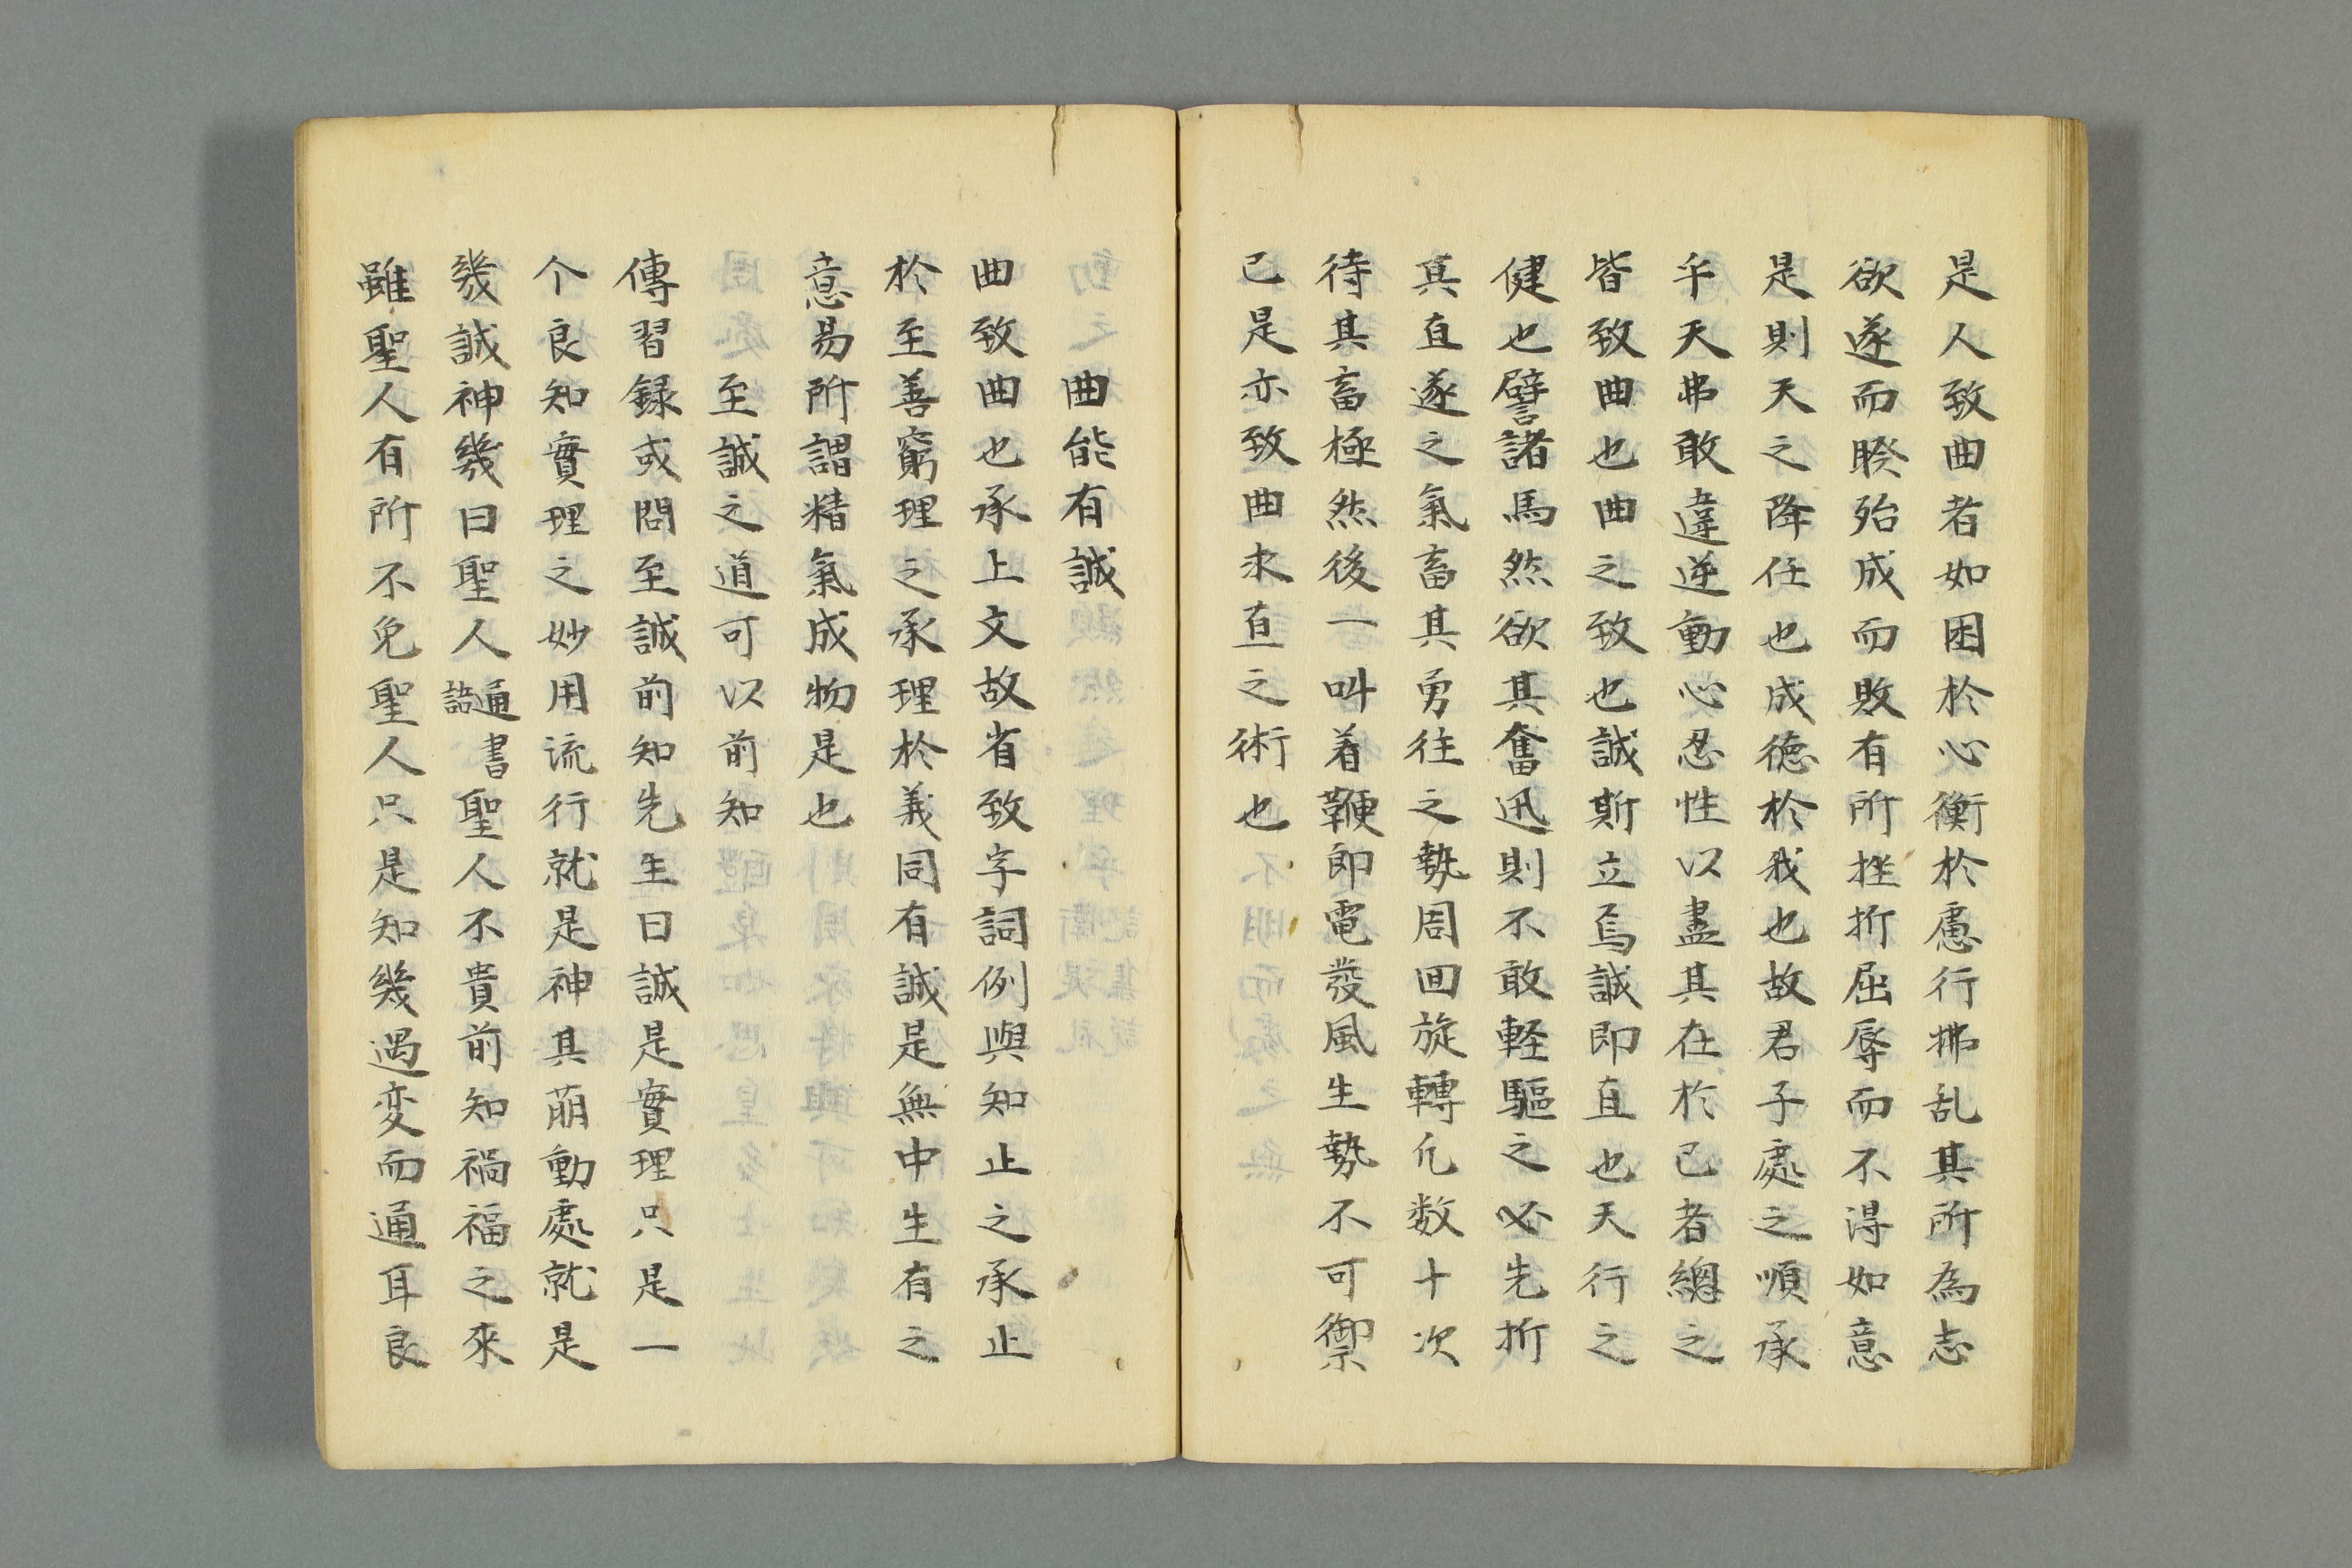 是人致曲者如困於心衡於慮行拂乱其所為志
欲遂而睽殆成而敗有所挫折屈辱而不得如意
是則天之降任也成徳於我也故君子處之順承
乎天弗敢違逆動心忍性以盡其在於己者總之
皆致曲也曲之致也誠斯立焉誠即直也天行之
健也譬諸馬然欲其奮迅則不敢軽驅之必先折
其直遂之氣畜其勇往之勢周回旋轉凢数十次
待其畜極然後一叫着鞭即電發風生勢不可禦
己是亦致曲求直之術也
曲能有誠
曲致曲也承上文故省致字詞例與知止之承止
於至善窮理之承理於義同有誠是無中生有之
意易所謂精氣成物是也
至誠之道可以前知
傳習録或問至誠前知先生曰誠是實理只是一
个良知實理之妙用流行就是神其萌動處就是
幾誠神幾曰聖人通書語聖人不貴前知禍福之來
雖聖人有所不免聖人只是知幾遇変而通耳良